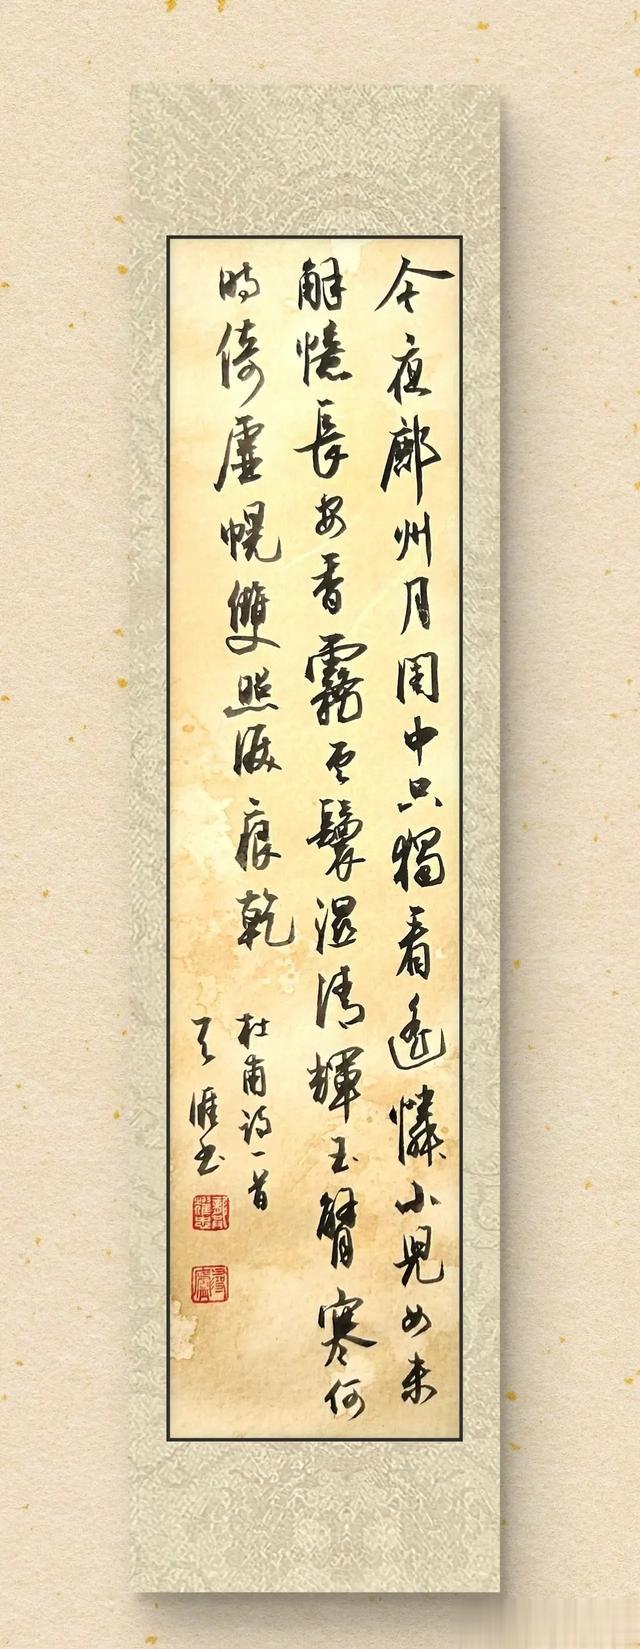 今夜鄜州月閨中只獨看遙憐小兒女未
解憶長安香霧雲鬟濕清輝玉臂寒何
時倚虛幌雙照淚痕乾
杜甫詩一首
天涯书